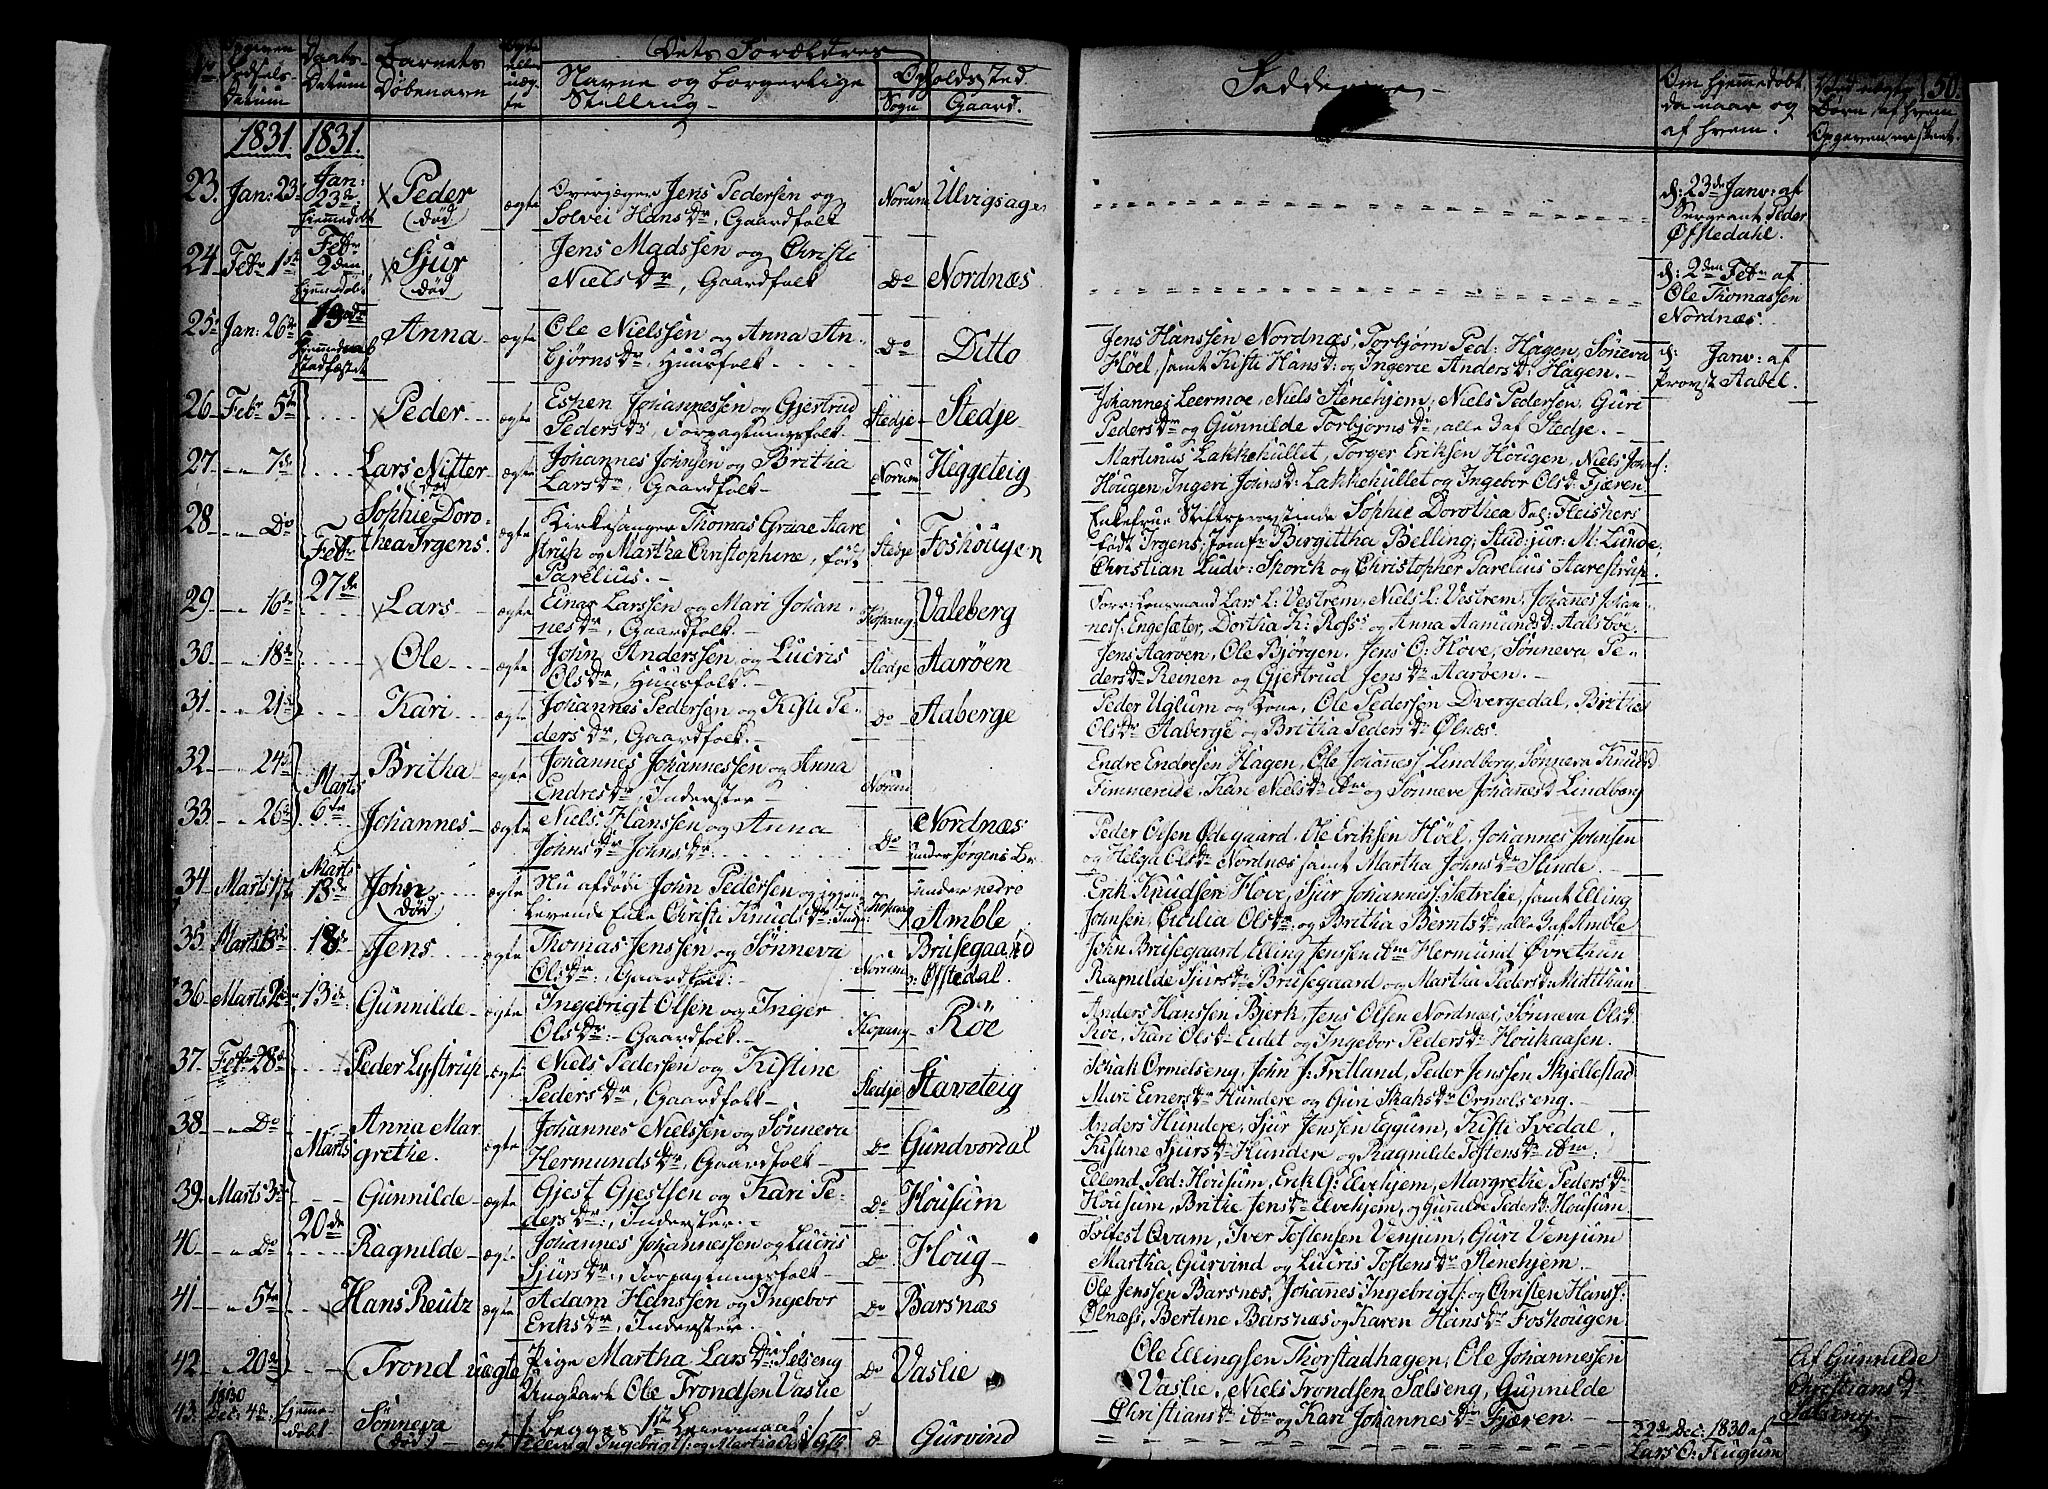 No Opgiven Fødsels Datum | Daabs Datum | Barnets Døbenavn | Ægte eller uægte | Dets Forældres | Navne og borgerlige Stilling | Opholdssted | Sogn | Gaard. | Fadderne | Om hjemmedøbt da naar og af hvem. | Ved uægte Børn af hvem Opgaven er skeet. | 150.
1831. 1831.
23. Jan: 23. Jan: 23de Hjemmedøbt Peder (død) ægte Overjæger Jens Pedersen og Solvei Hansdr, Gaardfolk Norum Ulvigsager d: 23de Janv: af Sergeant Peder Øfstedahl.
24 Febr 1ste Febr 2den Hjemmedøbt Sjur (død) Jens Madssen og Christi Nielsdr, Gaardfolk Do Nordnæs d: 2den Febr af Ole Thomassen Nordnæs.
25 Jan: 26de 13de Anna ægte Ole Nielssen og Anna Anbjørnsdr, Huusfolk Do Ditto
Jens Hanssen Nordnæs, Torbjørn Ped: Hagen, Sønneva
Höel, samt Kisti Hansd: og Ingerie Andersd: Hagen.
d: Janv: af Provst Aabel.
26 Febr 5te Peder ægte Espen Johannessen og Gjertrud Pedersdr, Forpagtningsfolk. Stedje Stedje
Johannes Leermoe, Niels Stenehjem, Niels Pedersen, Guri
Pedersdr og Gunnilde Torbjørnsdr, alle 3 af Stedje.
27 7de Lars Nitter død ægte Johannes Johnsen og Britha Larsdr, Gaardfolk Norum Heggeteig
Martinus Lakkehullet, Torger Eriksen Hougen, Niels Johns:
Hougen, Ingeri Johnsd: Lakkehullet og Ingebor Olsd: Fjæren
28 Do Febr 27de Sophie Dorothea Irgens. ægte Kirkesanger Thomas Graae Aarestrup og Martha Christophine, født Parelius. Stedje Foshougen
Enkefrue Stiftsprovstinde Sophie Dorothea Sal: Fleishers
født Irgens, Jomfr Birgittha Belling, Stud: jur: M: Lunde,
Christian Ludv: Sporck og Christopher Parelius Aarestrup.
29 16de Lars ægte Einar Larssen og Mari Johannesdr, Gaardfolk. Kopang: Valeberg
Forr: Lensmand Lars L: Vestrem, Niels L: Vestrem, Johannes Johanness. Engesæter, Dortha K: Ross og Anna Aamundsd: Aalsboe.
30 18de Ole ægte John Anderssen og Lucris Olsdr, Huusfolk. Stedje Aarøen
Jens Aarøen, Ole Bjørgen, Jens O: Hove, Sønneva Pedersdr Reinen og Gjertrud Jensdr Aarøen.
31 21de Kari ægte Johannes Pedersen og Kisti Pedersdr, Gaardfolk. Do Aaberge
Peder Uglum og Kone, Ole Pedersen Dvergedal, Britha
Olsdr Aaberge og Britha Pedersdr Ølnæs.
32 24de Marts 6te Britha ægte Johannes Johannessen og Anna Endresdr, Inderster Norum
Endre Endresen Hagen, Ole Johaness Lindberg, Sønneva Knudsd
Timmereide, Kari Nielsdr ibm og Sønneve Johanesd Lindberg
33 26de Johannes ægte Niels Hanssen og Anna Johnsdr Johnsdr Do Nordnæs under Jørgens Br.
Peder Olsen Ødegaard, Ole Eriksen Höel, Johannes Johnsen
og Helga Olsdr Nordnæs samt Martha Johnsdr Slinde.
34 Marts 1ste Marts 13de John (død) ægte Nu afdøde John Pedersen og igjenlevende Enke Christi Knudsdr Inds: Kopang under nedre Amble
Erik Knudsen Hove, Sjur Johanness: Sætrelie, samt Elling
Johnsen, Cicilia Olsdr og Britha Berntsdr, alle 3 af Amble
35 Marts 18de Jens ægte Thomas Jenssen og Sønneva Olsdr, Gaardfolk: Norum Brusegaard p: Øfstedal.
John Brusegaard, Elling Jenssen ibm Hermund Øvrethun
Ragnilde Sjursdr Brusegaard og Martha Pedersd: Midtthun
36 Marts 2den 13de Gunnilde ægte Ingebrigt Olsen og Inger Olsdr Gaardfolk. Kopang: Röe
Anders Hanssen Bjerk, Jens Olsen Nordnæs, Sønneva Olsd
Roe, Kari Olsdr Eidet og Ingebor Pedersdr Houkaasen.
37 Febr 28de Peder Lystrup ægte Niels Pedersen og Kistine Pedersdr, Gaardfolk Stedje Staveteig
Johak Ormelseng, John J. Fretland, Peder Jenssen Skjellestad
Mari Einersdr Hundere og Guri Skaksdr Ormelseng.
38 Do Marts 20de Anna Margrethe. ægte Johannes Nielssen og Sønneva Hermundsdr, Gaardfolk Do Gundvordal
Anders Hundere, Sjur Jenssen Eggum, Kisti Svedal,
Kistine Sjursdr Hundere og Ragnilde Tostensdr ibm:
39 Marts 3de Gunnilde ægte Gjest Gjestsen og Kari Pedersdr:, Inderster. Do Housum
Ellend Ped: Housum, Erik G: Elvehjem, Margrethe Pedersdr
Housum, Brithe Jensdr Elvehjem, og Gunnilde Pedersd: Housum
40 Do Ragnilde ægte Johannes Johannessen og Lucris Sjursdr, Forpagtningsfolk Do Houg
Solfest Qvam, Iver Tostensen Venjum, Guri Venjum
Martha Gurvind og Lucris Tostensdr Stenehjem.
41 5te Hans Reutz ægte Adam Hanssen og Ingebor Eriksdr, Inderster. Do Barsnæs
Ole Jenssen Barsnæs, Johannes Ingebrigts: og Christen Hanss:
Ølnæss, Bertine Barsnæs og Karen Hansdr Foshougen.
42 20de Trond uægte Pige Martha Larsdr Salseng Ungkarl Ole Trondsen Vaslie begges 1ste Leiermaal Do Vaslie
Ole Ellingsen Thorstadhagen, Ole Johannessen
Vaslie, Niels Trondsen Salseng, Gunnilde
Christiansdr ibm og Kari Johannesdr Fjæren.
Af Gunnilde Christiansdr Salseng
43. 1830 Dec: 4de Hjemmedøbt Sönneva (død) ægte Elling Ingebrigts: og Martha Gurvind
22de Dec: 1830 af Lars O: Flugum